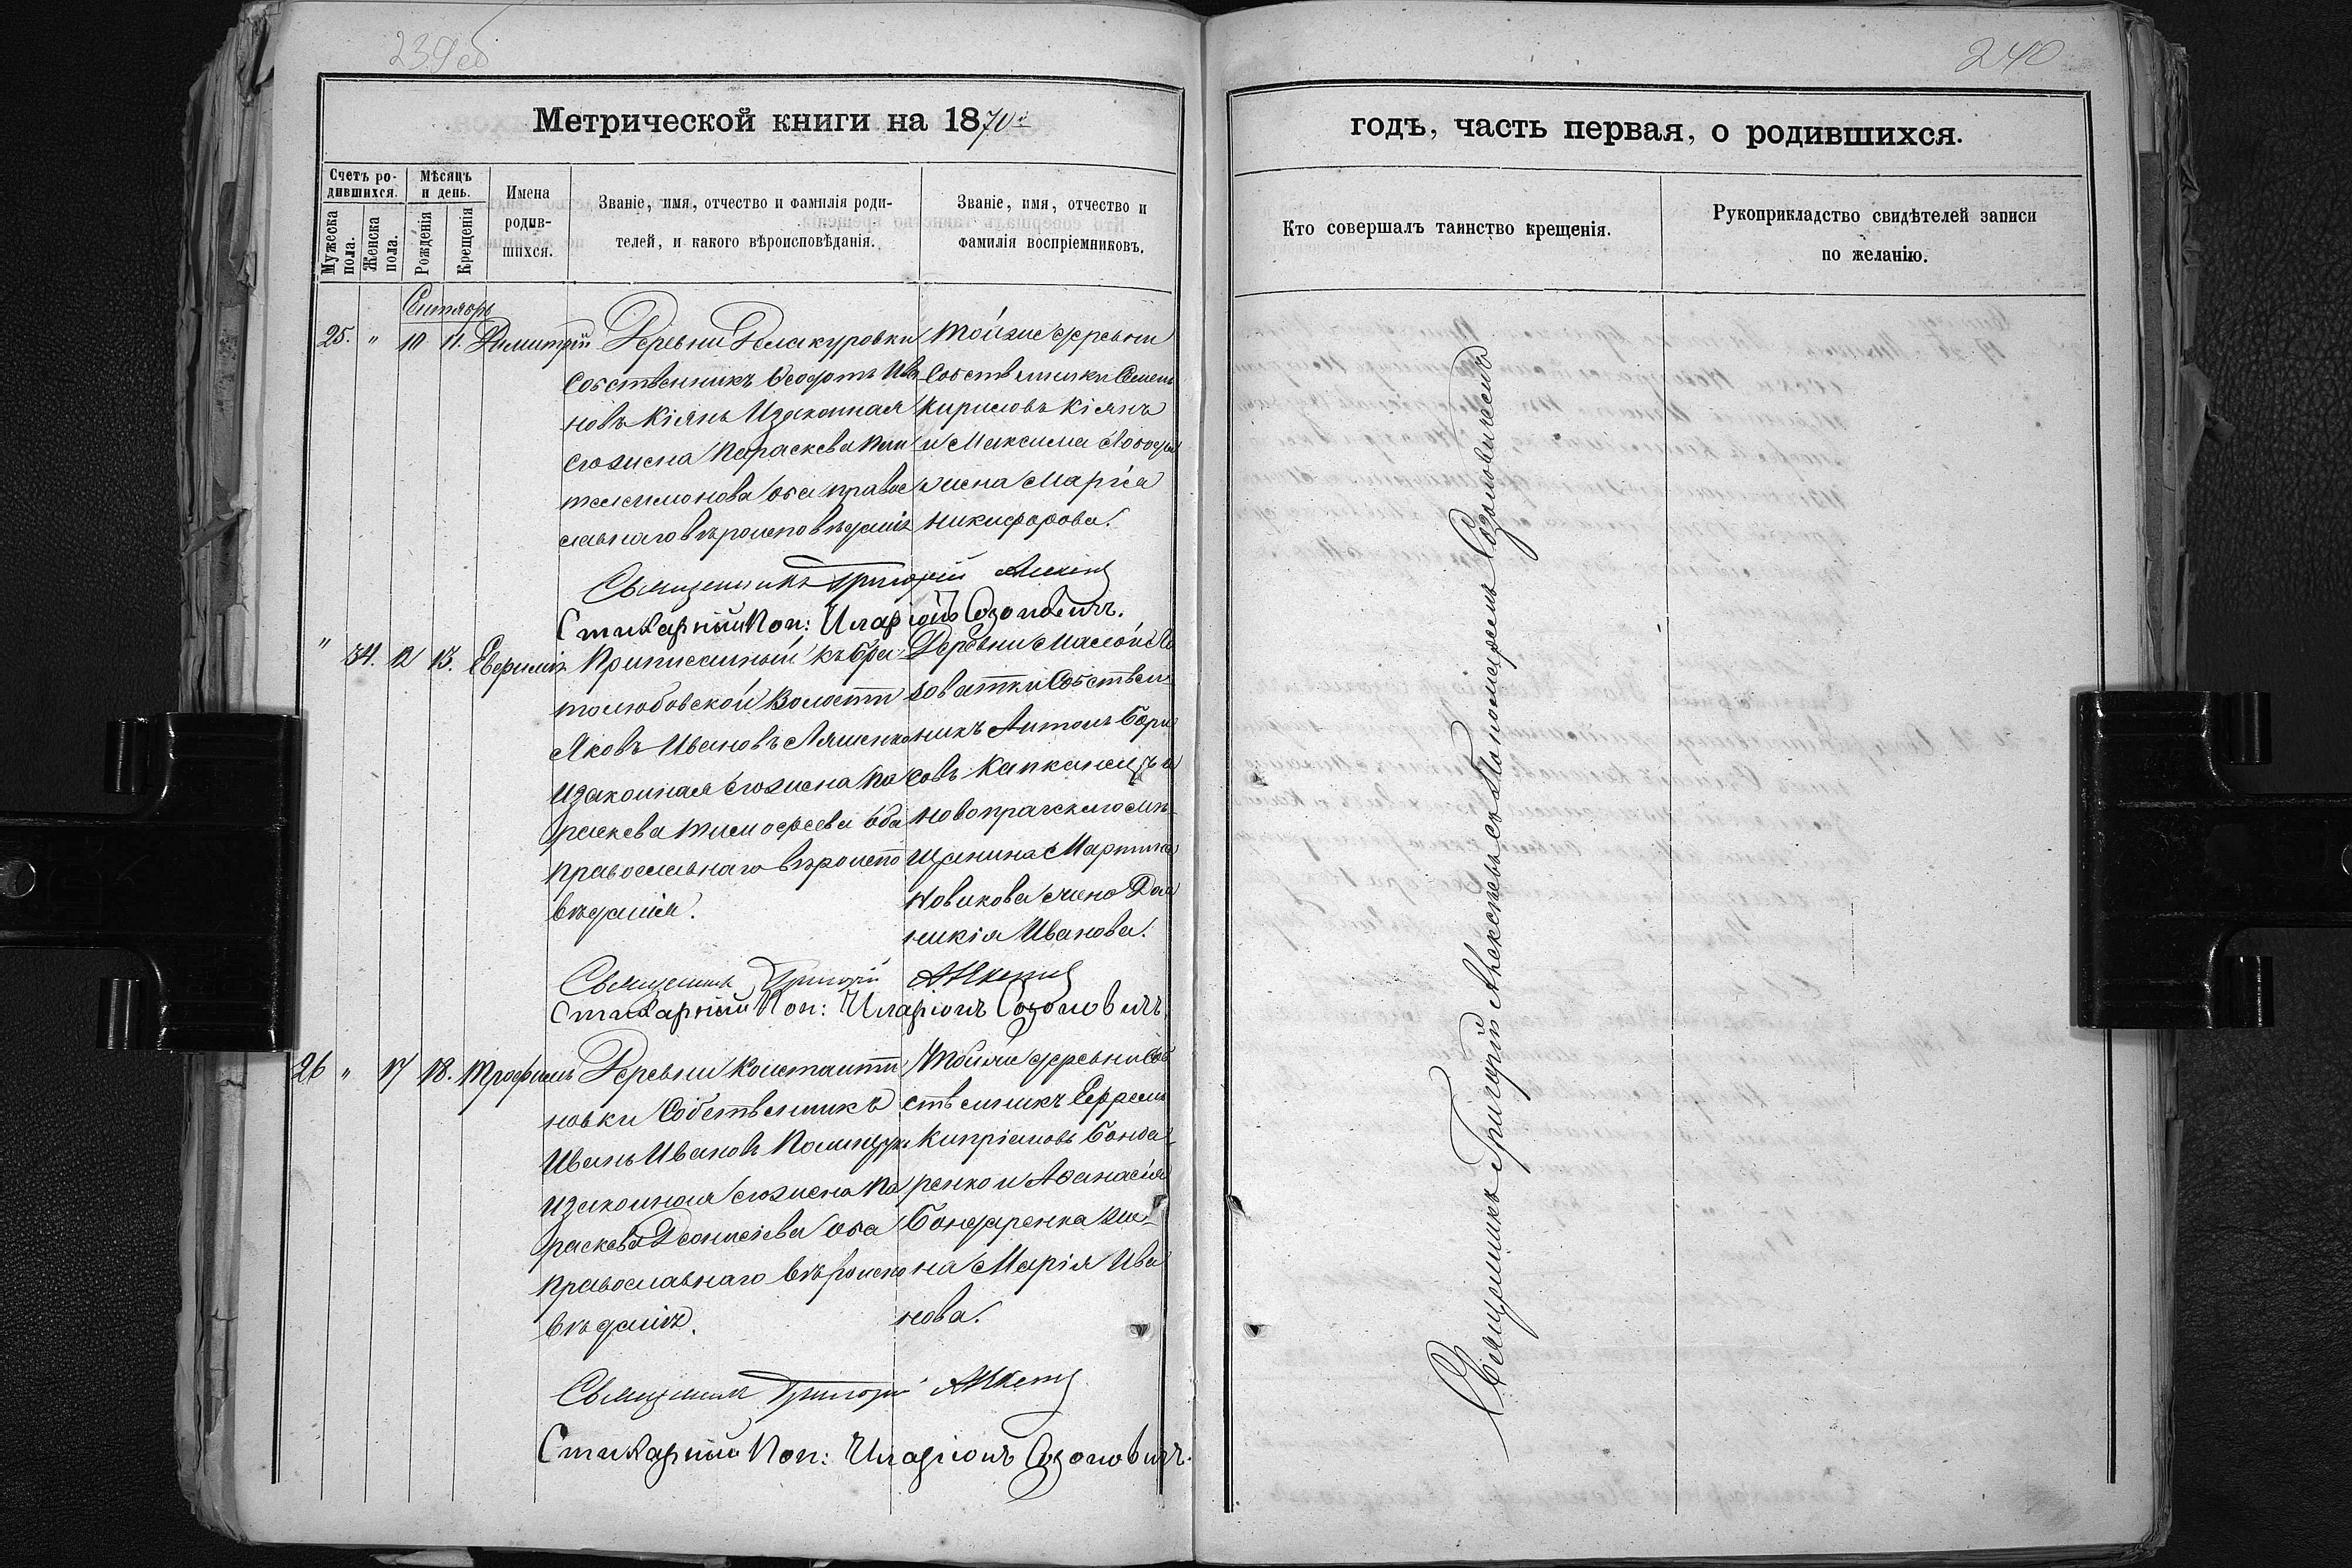 239об
240
Метрической книги на 1870й
годъ, часть первая, о родившихся.
Счетъ родившихся.
Мужеска пола.
Женска пола.
Мѣсяцъ и день.
Рожденія
Крещенія
Имена родившихся.
Званіе, имя, отчество и фамилія родителей, и какого вѣроисповѣданія.
Званіе, имя, отчество и фамилія воспріемниковъ.
Кто совершалъ таинство крещенія.
Рукоприкладство свидѣтелей записи по желанію.
Сентябрь
25. " 10 11. Димитрій
Деревни Белакуровки
собственникъ Ѳеодотъ Ива
новъ Кіянъ и законная
его жена Параскева Пан
телимонова оба правос
славнаго вѣроисповѣданія
Тойже деревни
собственники Семенъ
Кириловъ Кіянъ
и Максима
жена Марія
Никифорова.
Священникъ Григорій
Стихарный Пон: Иларіонъ Созоновичъ.
" 34. 12 13. Евфимія
Приписанный къ Бра
толюбовской Волости
Яковъ Ивановъ Ляшенко
и законная его жена Па
раскева Тимофеева оба
православнаго вѣроиспо
вѣданія.
Деревни Малой
собствен
никъ Антонъ Бори
совъ и
Новопражскаго мѣ
щанина Мартина
Новикова жена
Иванова.
Священникъ Григорій
Стихарный Пон: Иларіонъ Созоновичъ.
26 " 17 18. Трофимъ
Деревни Константи
новки Собственникъ
Иванъ Ивановъ
и законная его жена Па
раскева Деонисіева оба
православнаго вѣроиспо
вѣданія.
Тойже деревни соб
ственникъ Ефремъ
Кипріановъ Бонда
ренко и Афанасія
Бондаренка же
на Марія Ива
нова.
Священникъ Григорій
Стихарный Пон: Иларіонъ Созоновичъ.
Священникъ Григорій Алексѣевъ съ Пономаремъ Созоновичемъ